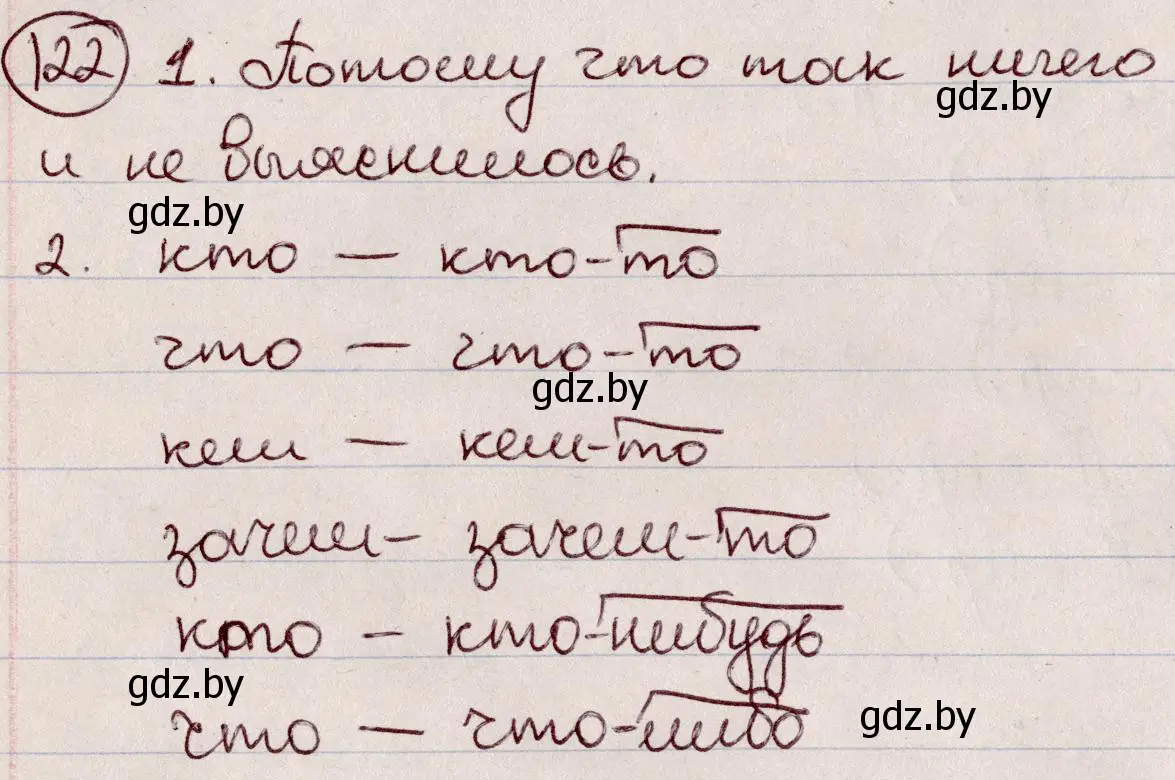 122 1. Потому что так ничего
gdz.by
и не выяснилось.
gdz.by
2. кто — кто-то
что — что-то
gdz.by
кем — кем-то
зачем — зачем-то
кого — кто-нибудь
gdz.by
что — что-либо
gdz.by